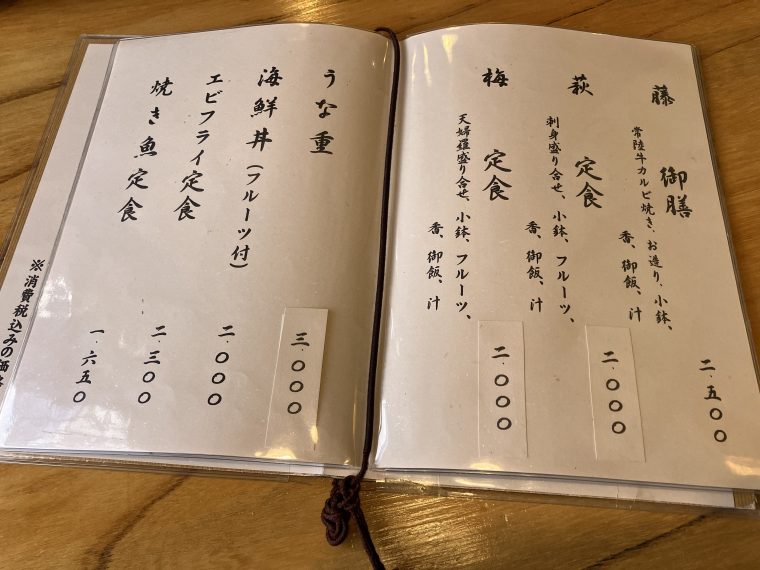 藤 御膳
常陸牛カルビ焼き、お造り、小鉢、
香、御飯、汁
二、五〇〇
萩 定食
刺身盛り合せ、小鉢、フルーツ、
香、御飯、汁
二、〇〇〇
梅 定食
天婦羅盛り合せ、小鉢、フルーツ、
香、御飯、汁
二、〇〇〇
うな重
三、〇〇〇
海鮮丼(フルーツ付)
二、〇〇〇
エビフライ定食
二、三〇〇
焼き魚定食
一、六五〇
※消費税込みの価